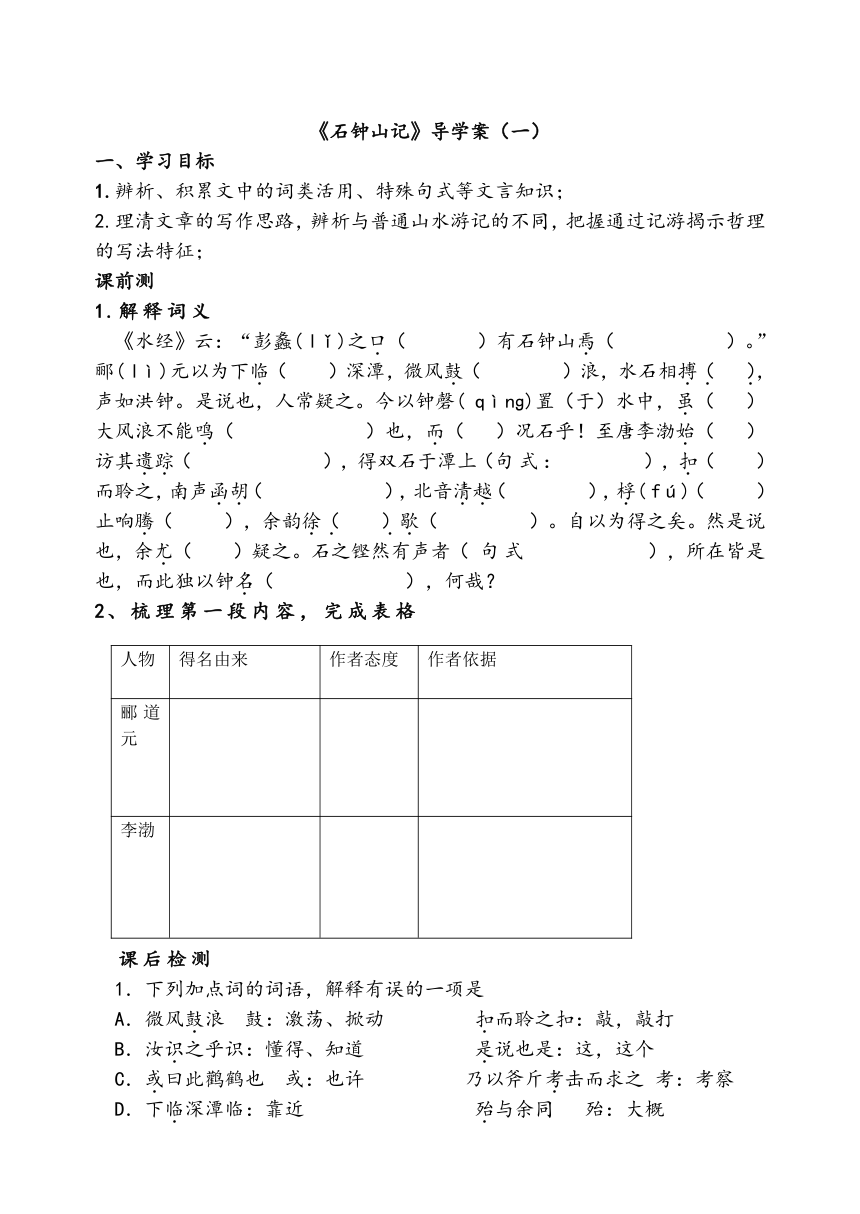 《石钟山记》导学案（一）
一、学习目标
1.辨析、积累文中的词类活用、特殊句式等文言知识；
2.理清文章的写作思路，辨析与普通山水游记的不同，把握通过记游揭示哲理
的写法特征；
课前测
1.解释词义
《水经》云：“彭蠡(lǐ)之口（ ）有石钟山焉（ ）。”
郦(lì)元以为下临（ ）深潭，微风鼓（ ）浪，水石相搏（ ），
声如洪钟。是说也，人常疑之。今以钟磬(qìng)置（于）水中，虽（ ）
大风浪不能鸣（ ）也，而（ ）况石乎！至唐李渤始（ ）
访其遗踪（ ），得双石于潭上（句式： ），扣（ ）
而聆之，南声函胡（ ），北音清越（ ），桴(fú)（ ）
止响腾（ ），余韵徐（ ）歇（ ）。自以为得之矣。然是说
也，余尤（ ）疑之。石之铿然有声者（ 句式 ），所在皆是
也，而此独以钟名（ ），何哉？
2、梳理第一段内容，完成表格
人物 得名由来 作者态度 作者依据
郦道
元
李渤
课后检测
1．下列加点词的词语，解释有误的一项是
A．微风鼓浪 鼓：激荡、掀动 扣而聆之扣：敲，敲打
B．汝识之乎识：懂得、知道 是说也是：这，这个
C．或曰此鹳鹤也 或：也许 乃以斧斤考击而求之 考：考察
D．下临深潭临：靠近 殆与余同 殆：大概